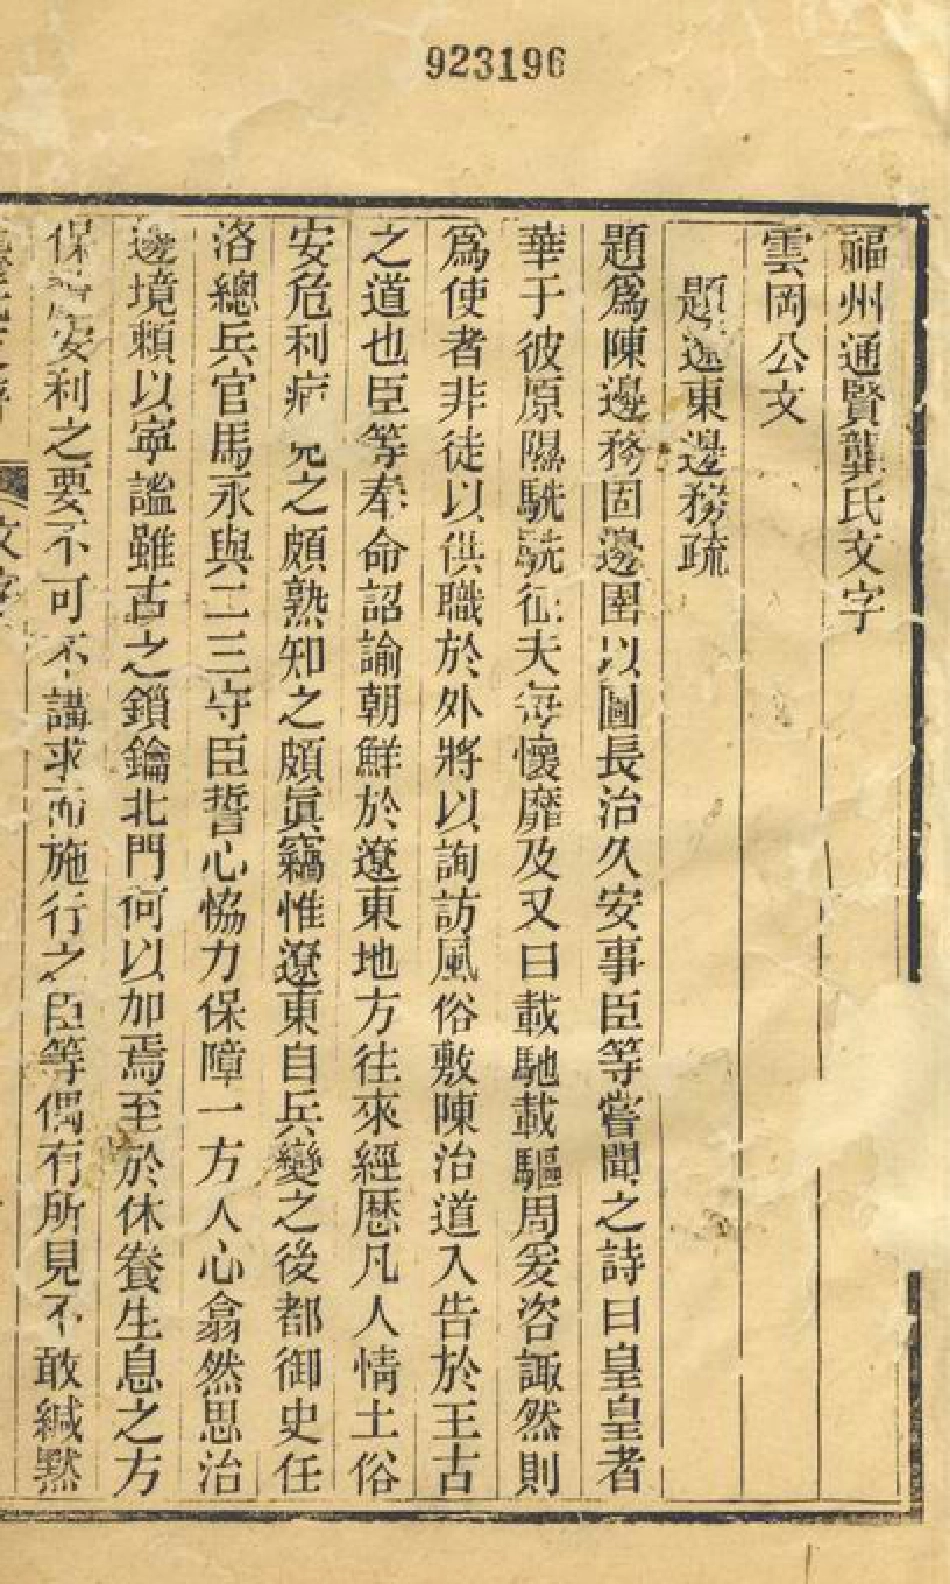 923196
福州通賢龔氏文字
雲岡公文
題遼東邊務疏
題爲陳邊務固邊圉以圖長治久安事臣等嘗聞之詩曰皇皇者
華于彼原隰駪駪征夫每懷靡及又曰載馳載驅周爰咨諏然則
爲使者非徒以供職於外將以詢訪風俗敷陳治道入告於王古
之道也臣等奉命詔諭朝鮮於遼東地方往來經歷凡人情土俗
安危利病見之頗熟知之頗眞竊惟遼東自兵變之後都御史任
洛總兵官馬永與二三守臣誓心恊力保障一方人心翕然思治
邊境賴以寧謐雖古之鎖鑰北門何以加焉至於休養生息之方
保安利之要不可不講求而施行之臣等偶有所見不敢緘默
文字